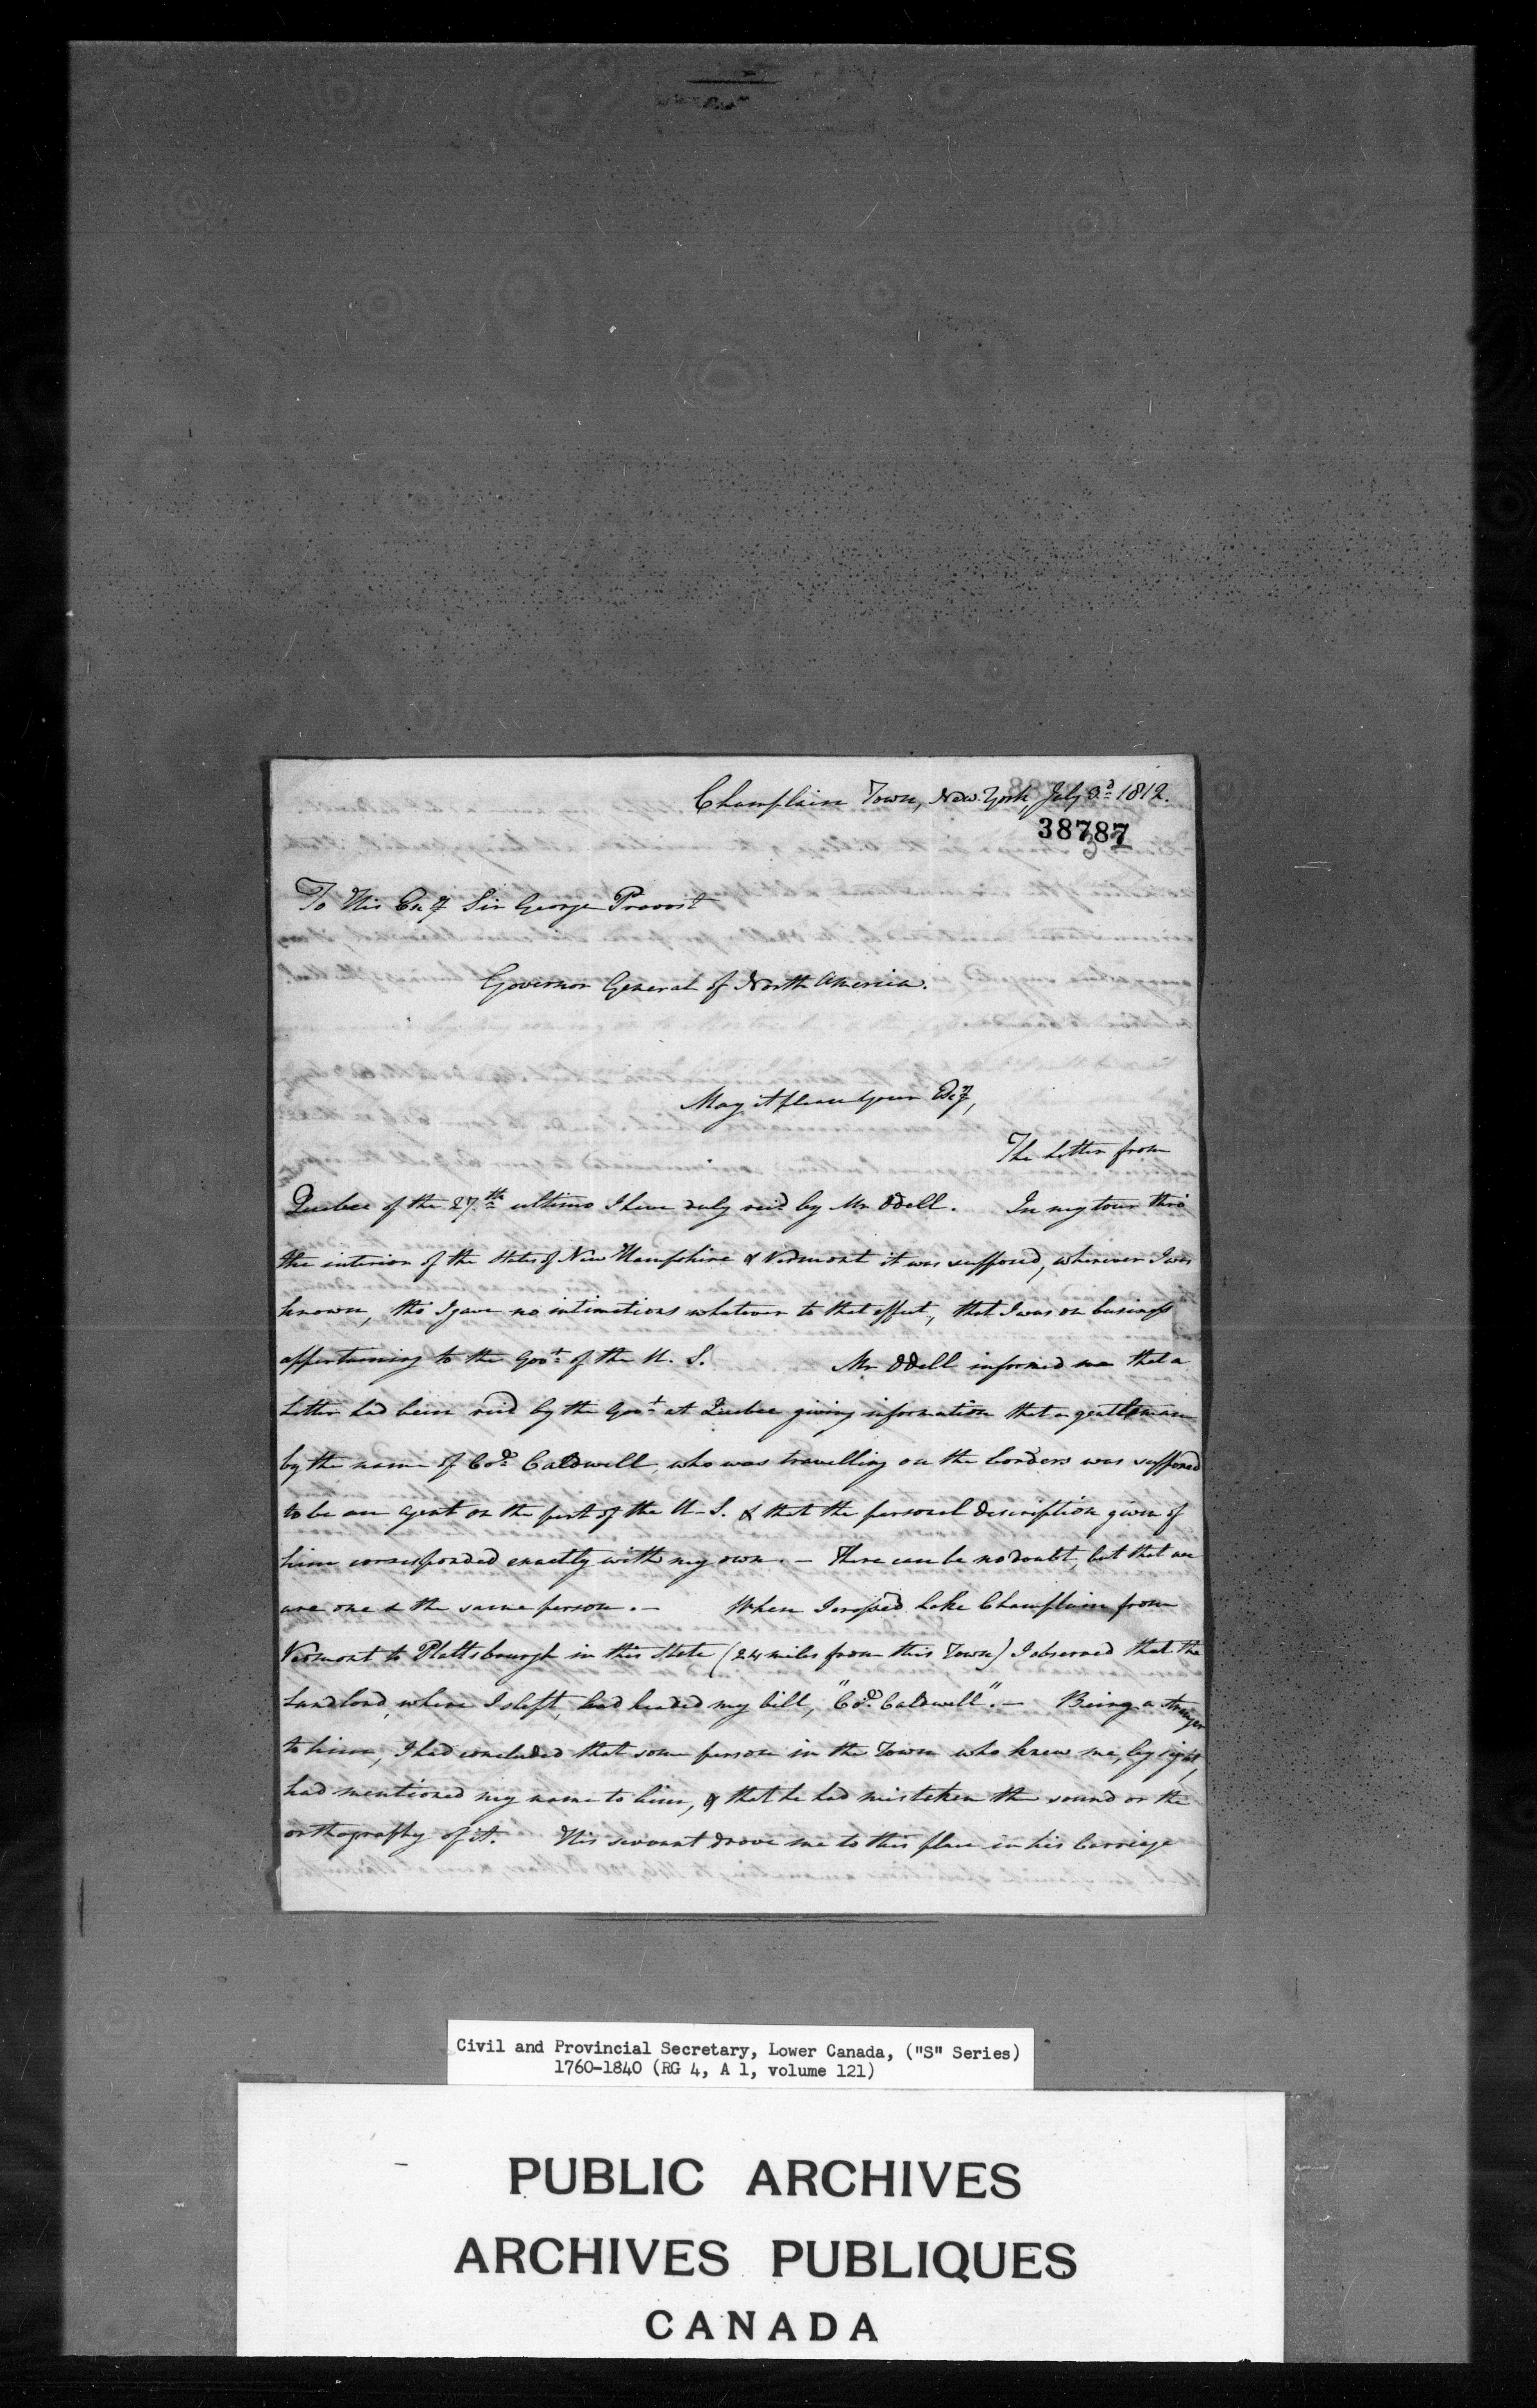 Champlain Town, New-York, July 3d. 1812.
38787
To His Exy Sir George Provost
Governor General of North America.
May it please your Exy,
The Letter from
Quebec of the 27th ultimo I have duly recd by Mr Odell. In my tour thro'
the interior of the States of New Hampshire & Vermont it was supposed, wherever I was
known, tho' I gave no intimations whatever to that effect, that I was on business
appertaining to the Govt. of the U. S. Mr Odell informed me that a
Letter had been recd by the Govt at Quebec giving information that a gentleman
by the name of Cod. Caldwell, who was travelling on the borders was supposed
to be an agent on the part of the U-S. & that the personal description given of
him corresponded exactly with my own. - There can be no doubt, but that we
are one & the same person. - When I crossed Lake Champlain from
Vermont to Plattsbourgh in this State (24 miles from this Town) I observed that the
Landlord, where I slept, had headed my bill, "Cod. Caldwell". - Being a stranger
to him, I had concluded that some person in the Town who knew me, by sight,
had mentioned my name to him, & that he had mistaken the sound or the
orthography of it. His servant drove me to this place in his Carriage
Civil and Provincial Secretary, Lower Canada, ("S" Series)
1760-1840 (RG 4, A 1, volume 121)
PUBLIC ARCHIVES
ARCHIVES PUBLIQUES
CANADA